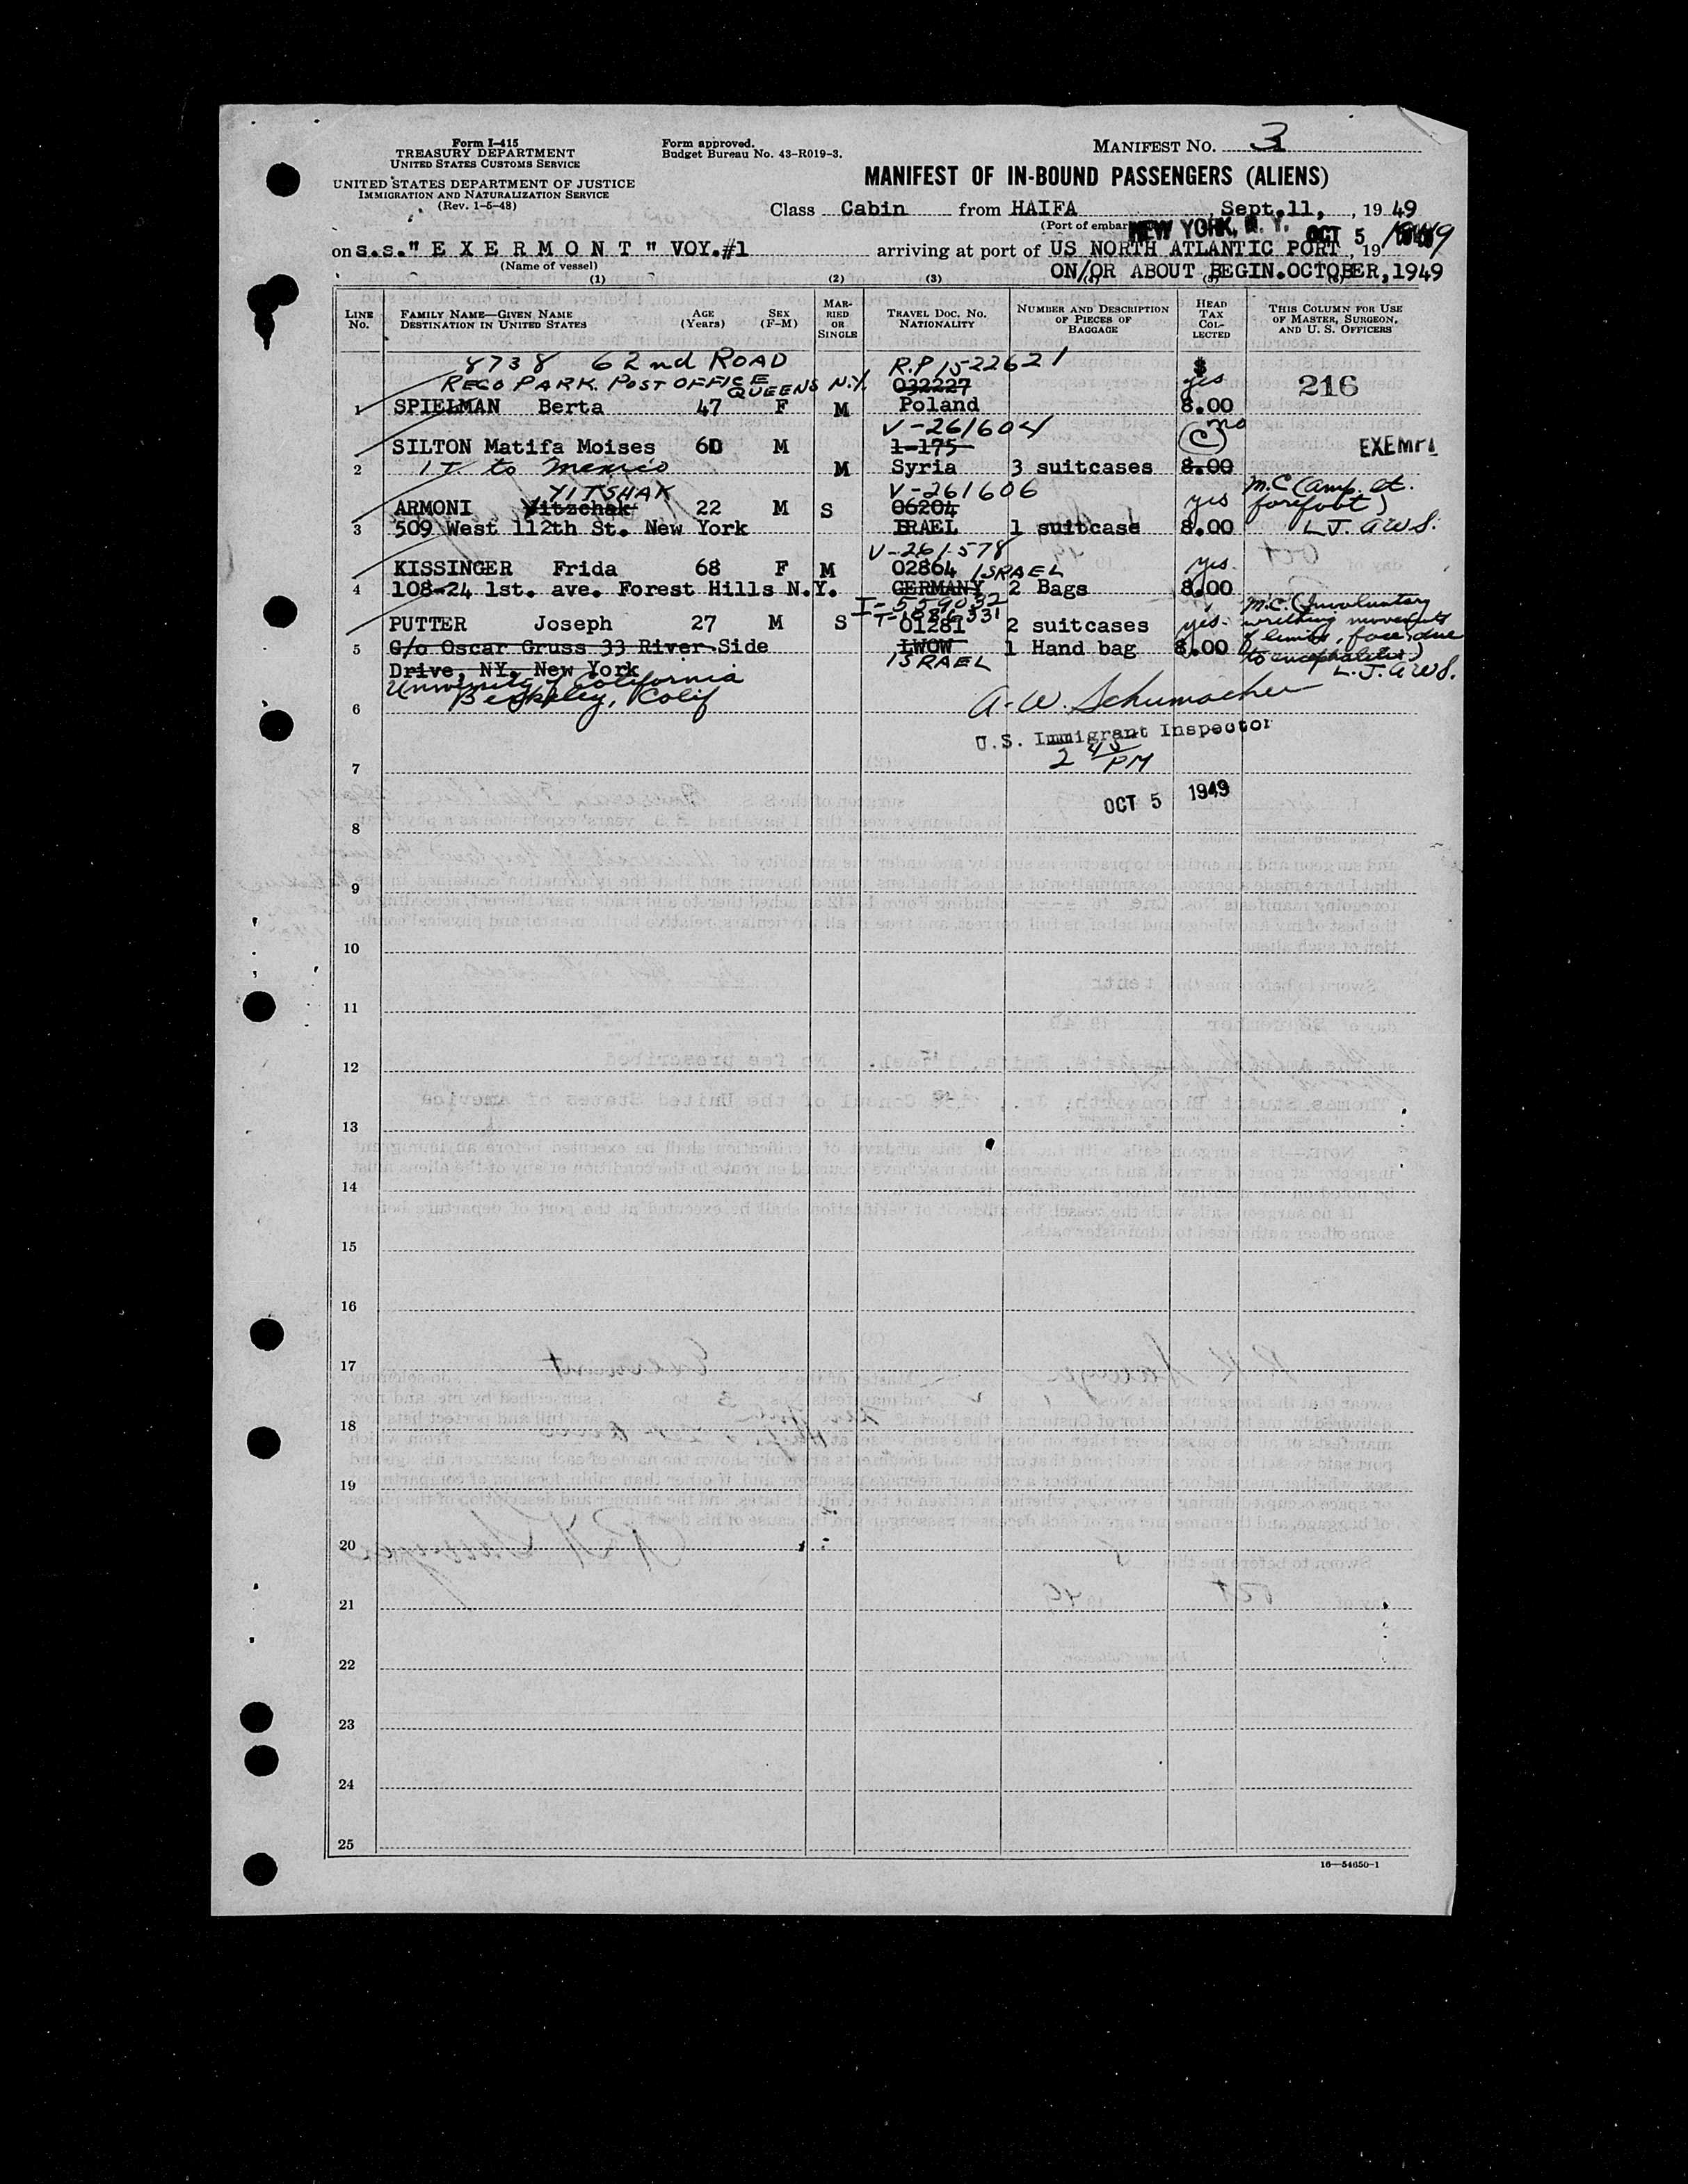 Form I-415
TREASURY DEPARTMENT
UNITED STATES CUSTOMS SERVICE
UNITED STATES DEPARTMENT OF JUSTICE
IMMIGRATION AND NATURALIZATION SERVICE
(Rev. 1-5-48)
Form approved.
Budget Bureau No. 43-R019-3.
MANIFEST NO. 3
MANIFEST OF IN-BOUND PASSENGERS (ALIENS)
Class Cabin from HAIFA, Sept.11, , 1949
(Port of embar
NEW YORK, N. Y. OCT 5 1949
on s.s." E X E R M O N T " VOY.#1 arriving at port of US NORTH ATLANTIC PORT, 19
(Name of vessel)
ON/OR ABOUT BEGIN.OCTOBER,1949
(1) (2) (3) (4) (5) (6)
LINE No. FAMILY NAME—GIVEN NAME DESTINATION IN UNITED STATES AGE (Years) SEX (F-M) MARRIED OR SINGLE TRAVEL DOC. NO. NATIONALITY NUMBER AND DESCRIPTION OF PIECES OF BAGGAGE HEAD TAX COLLECTED THIS COLUMN FOR USE OF MASTER, SURGEON, AND U. S. OFFICERS
8738 62nd ROAD R.P 1522621 $
REGO PARK. POST OFFICE QUEENS N.Y. 032227 yes 216
1 SPIELMAN Berta 47 F M Poland 8.00
V-261604 no
SILTON Matifa Moises 60 M 1-175 C EXEMPT
2 IT to Mexico M Syria 3 suitcases 8.00
YITSHAK V-261606 M.C (Amp. lt.
ARMONI Yitzchak 22 M S 06204 yes forefoot)
3 509 West 112th St. New York ISRAEL 1 suitcase 8.00 L.J. AWS.
V-261578
KISSINGER Frida 68 F M 02864 ISRAEL yes
4 108-24 1st. ave. Forest Hills N.Y. GERMANY 2 Bags 8.00
I-559032 M.C. (Involuntary
T-1086331
PUTTER Joseph 27 M S 01281 2 suitcases yes writhing movements
5 C/o Oscar Gruss 33 River Side LWOW 1 Hand bag 8.00 of limbs, face, due
Drive, NY. New York ISRAEL to encephalitis)
University of California L.J. AWS.
Berkeley, Calif
6 A. W. Schumacher
U.S. Immigrant Inspector
7 2 45 PM
OCT 5 1949
8
9
10
11
12
13
14
15
16
17
18
19
20
21
22
23
24
25
16—54650-1